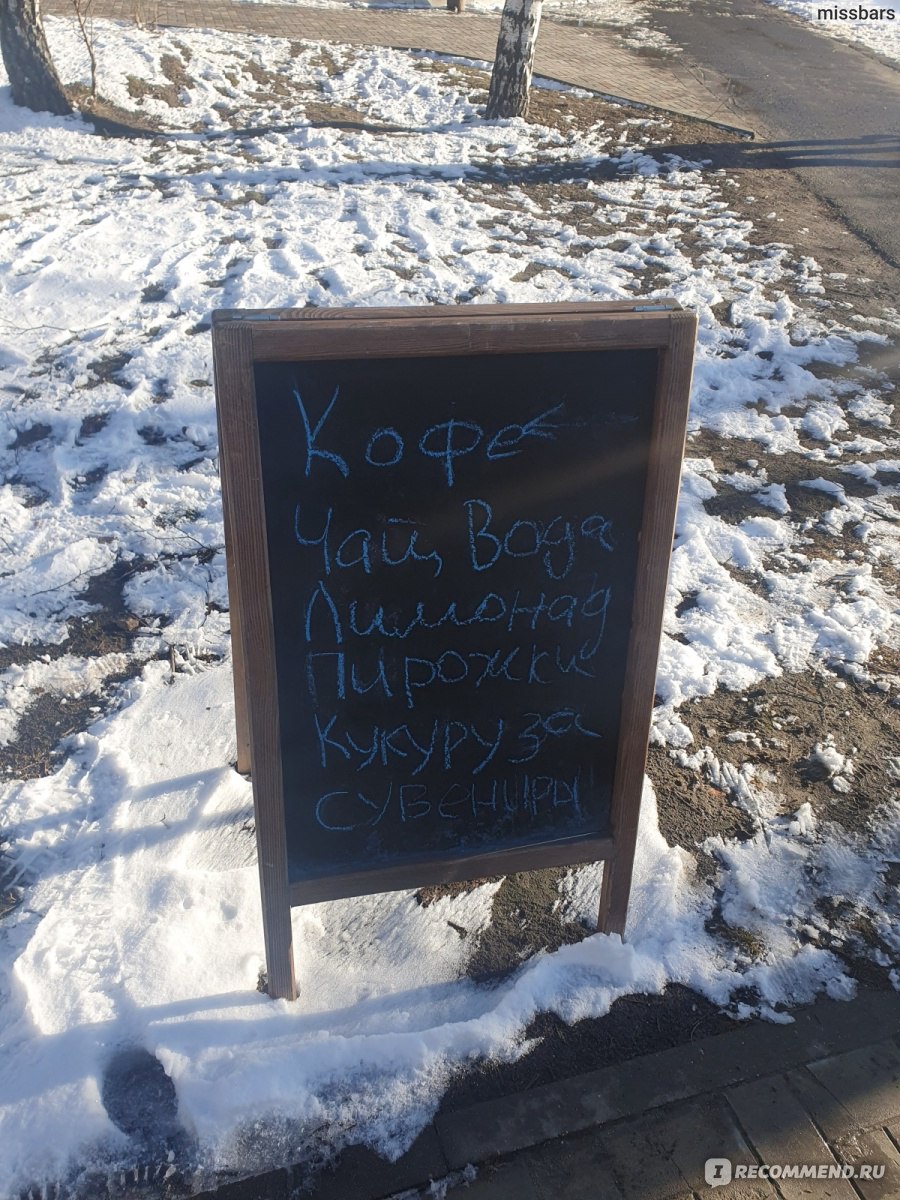 missbars
Кофе
Чай, Вода
Лимонад
Пирожки
Кукуруза
сувениры
IRECOMMEND.RU